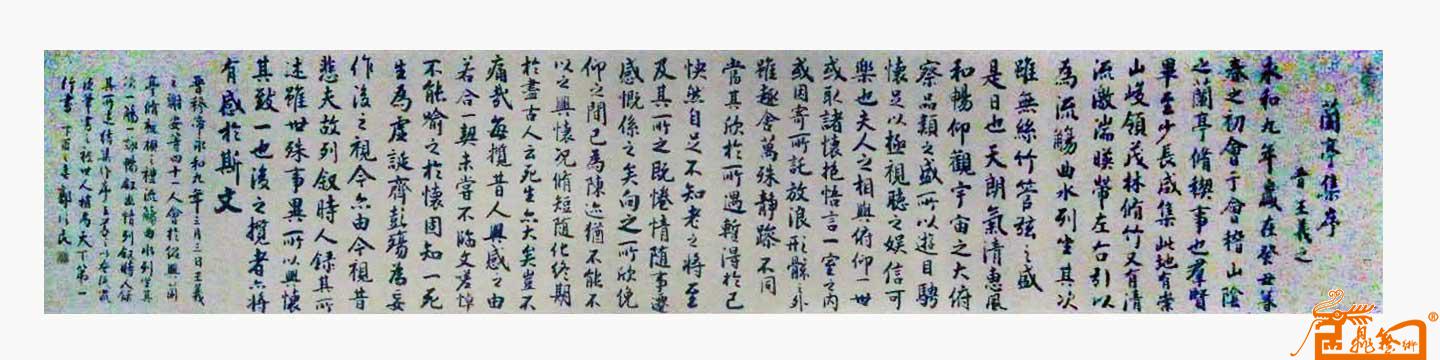 蘭亭集序
晉王羲之
永和九年歲在癸丑暮
春之初會于會稽山陰
之蘭亭脩稧事也羣賢
畢至少長咸集此地有崇
山峻領茂林脩竹又有清
流激湍暎帶左右引以
為流觴曲水列坐其次
雖無絲竹管弦之盛
是日也天朗氣清惠風
和暢仰觀宇宙之大俯
察品類之盛所以遊目騁
懷足以極視聽之娛信可
樂也夫人之相與俯仰一世
或取諸懷抱悟言一室之內
或因寄所託放浪形骸之外
雖趣舍萬殊靜躁不同
當其欣於所遇暫得於己
怏然自足不知老之將至
及其所之既惓情隨事遷
感慨係之矣向之所欣俛
仰之間已為陳迹猶不能不
以之興懷況脩短隨化終期
於盡古人云死生亦大矣豈不
痛哉每攬昔人興感之由
若合一契未嘗不臨文嗟悼
不能喻之於懷固知一死
生為虛誕齊彭殤為妄
作後之視今亦由今視昔
悲夫故列敘時人錄其所
述雖世殊事異所以興懷
其致一也後之攬者亦將
有感於斯文
晉穆帝永和九年三月三日王羲
之謝安等四十一人會於紹興蘭
亭脩祓禊之禮流觴曲水列坐其
次一觴一詠暢敘幽情列敘時人錄
其所述
書之 世人稱為天下第一
行書